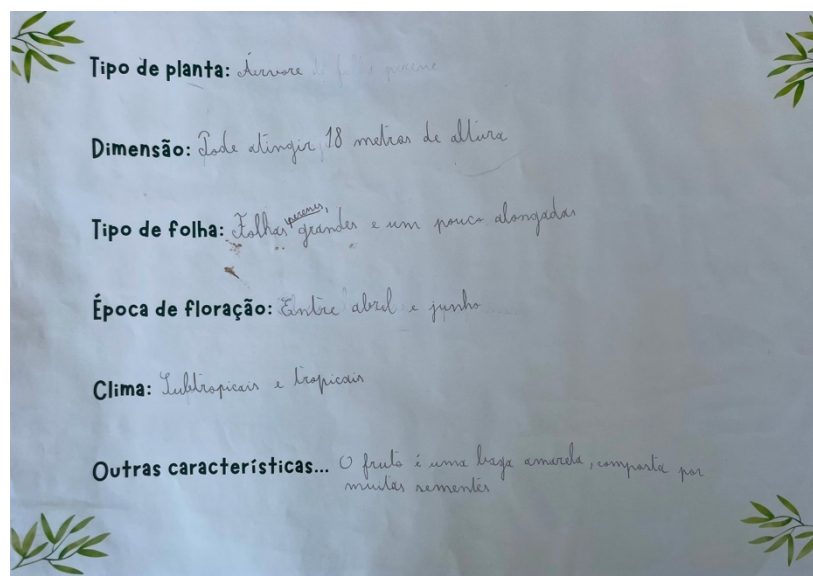 Tipo de planta: Árvore de folha perene
Dimensão: Pode atingir 18 metros de altura
Tipo de folha: Folhas perenes, grandes e um pouco alongadas
Época de floração: Entre abril e junho
Clima: Subtropicais e tropicais
Outras características... O fruto é uma baga amarela, composta por
muitas sementes